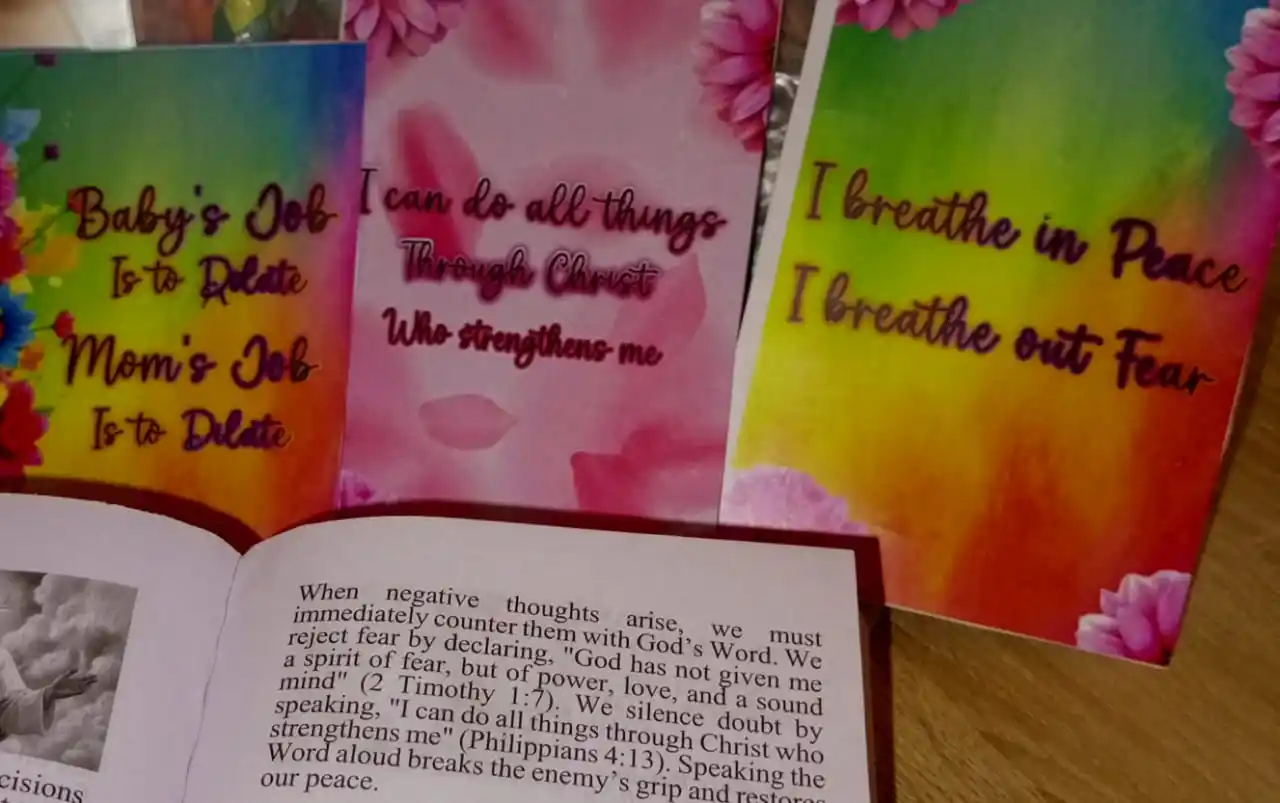 Baby's Job
Is to Dilate
Mom's Job
Is to Dilate
I can do all things
Through Christ
Who strengthens me
I breathe in Peace
I breathe out Fear
cisions
When negative thoughts arise, we must
immediately counter them with God's Word. We
reject fear by declaring, "God has not given me
a spirit of fear, but of power, love, and a sound
mind" (2 Timothy 1:7). We silence doubt by
speaking, "I can do all things through Christ who
strengthens me" (Philippians 4:13). Speaking the
Word aloud breaks the enemy's grip and restores
our peace.